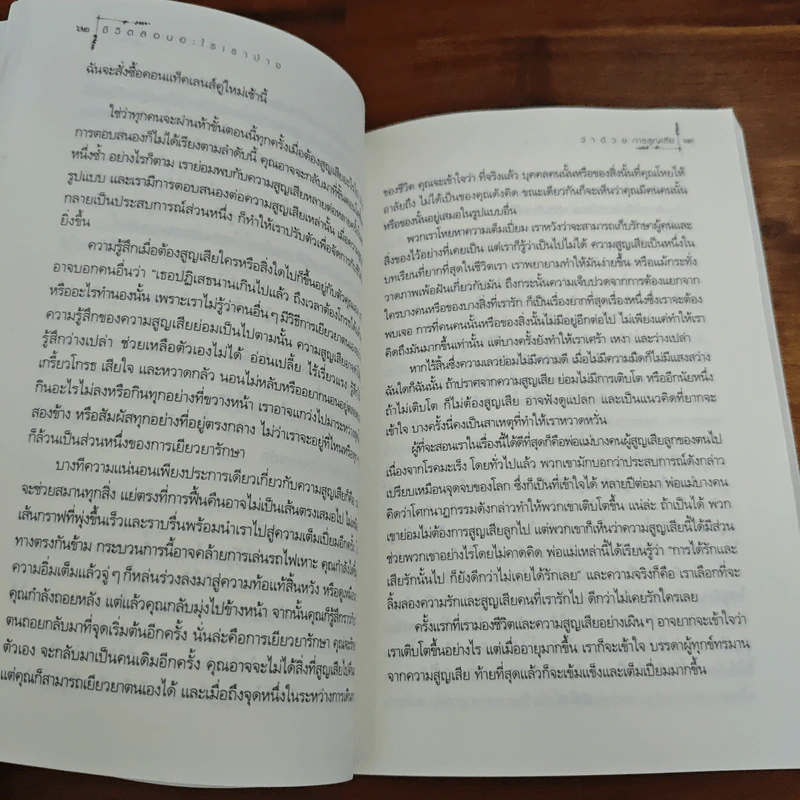 ๖๒ ชีวิตสอนอะไรเราบ้าง
ฉันจะสั่งซื้อคอนแท็คเลนส์คู่ใหม่เช้านี้
ใช่ว่าทุกคนจะผ่านห้าขั้นตอนนี้ทุกครั้งเมื่อต้องสูญเสียอะไรไป
การตอบสนองก็ไม่ได้เรียงตามลำดับนี้ คุณอาจจะกลับมาที่ขั้นตอน
หนึ่งซ้ำ อย่างไรก็ตาม เราย่อมพบกับความสูญเสียหลายต่อหลาย
รูปแบบ และเรามีการตอบสนองต่อความสูญเสียเหล่านั้น เมื่อ
กลายเป็นประสบการณ์ส่วนหนึ่ง ก็ทำให้เราปรับตัวเพื่อจัดการกับ
ยิ่งขึ้น
ความรู้สึกเมื่อต้องสูญเสียใครหรือสิ่งใดไปก็ขึ้นอยู่กับตัวคุณ
อาจบอกคนอื่นว่า "เธอปฏิเสธนานเกินไปแล้ว ถึงเวลาต้องโกรธ
หรืออะไรทำนองนั้น เพราะเราไม่รู้ว่าคนอื่นๆ มีวิธีการเยียวยา
ความรู้สึกของความสูญเสียย่อมเป็นไปตามนั้น ความสูญเสียอาจ
รู้สึกว่างเปล่า ช่วยเหลือตัวเองไม่ได้ อ่อนเปลี้ย ไร้เรี่ยวแรง
เกรี้ยวโกรธ เสียใจ และหวาดกลัว นอนไม่หลับหรืออยากนอนอยู่ตลอด
กินอะไรไม่ลงหรือกินทุกอย่างที่ขวางหน้า เราอาจแกว่งไปมาระหว่าง
สองข้าง หรือสัมผัสทุกอย่างที่อยู่ตรงกลาง ไม่ว่าเราจะอยู่ที่ไหนหรือ
ก็ล้วนเป็นส่วนหนึ่งของการเยียวยารักษา
บางทีความแน่นอนเพียงประการเดียวเกี่ยวกับความสูญเสียก็คือ
จะช่วยสมานทุกสิ่ง แย่ตรงที่การฟื้นคืนอาจไม่เป็นเส้นตรงเสมอไป
เส้นกราฟที่พุ่งขึ้นเร็วและราบรื่นพร้อมนำเราไปสู่ความเต็มเปี่ยมอีกครั้ง
ทางตรงกันข้าม กระบวนการนี้อาจคล้ายการเล่นรถไฟเหาะ คุณกำลังไต่
ความอิ่มเต็มแล้วจู่ๆ ก็หล่นร่วงลงมาสู่ความท้อแท้สิ้นหวัง หรือดูเหมือน
คุณกำลังถอยหลัง แต่แล้วคุณกลับมุ่งไปข้างหน้า จากนั้นคุณก็รู้สึกราวกับ
ตนถอยกลับมาที่จุดเริ่มต้นอีกครั้ง นั่นล่ะคือการเยียวยารักษา คุณจะรัก
ตัวเอง จะกลับมาเป็นคนเดิมอีกครั้ง คุณอาจจะไม่ได้สิ่งที่สูญเสียไปคืน
แต่คุณก็สามารถเยียวยาตนเองได้ และเมื่อถึงจุดหนึ่งในระหว่างการเดินทาง
ว่าด้วย การสูญเสีย ๖๓
ของชีวิต คุณจะเข้าใจว่า ที่จริงแล้ว บุคคลคนนั้นหรือของสิ่งนั้นที่คุณโหยไห้
อาลัยถึง ไม่ได้เป็นของคุณดังคิด ขณะเดียวกันก็จะเห็นว่าคุณมีคนคนนั้น
หรือของนั้นอยู่เสมอในรูปแบบอื่น
พวกเราโหยหาความเต็มเปี่ยม เราหวังว่าจะสามารถเก็บรักษาผู้คนและ
สิ่งของไว้อย่างที่เคยเป็น แต่เราก็รู้ว่าเป็นไปไม่ได้ ความสูญเสียเป็นหนึ่งใน
บทเรียนที่ยากที่สุดในชีวิตเรา เราพยายามทำให้มันง่ายขึ้น หรือแม้กระทั่ง
วาดภาพเพ้อฝันเกี่ยวกับมัน ถึงกระนั้นความเจ็บปวดจากการต้องแยกจาก
ใครบางคนหรือของบางสิ่งที่เรารัก ก็เป็นเรื่องยากที่สุดเรื่องหนึ่งซึ่งเราจะต้อง
พบเจอ การที่คนคนนั้นหรือของสิ่งนั้นไม่มีอยู่อีกต่อไป ไม่เพียงแค่ทำให้เรา
คิดถึงมันมากขึ้นเท่านั้น แต่บางครั้งยังทำให้เราเศร้า เหงา และว่างเปล่า
หากไร้สิ้นซึ่งความเลวย่อมไม่มีความดี เมื่อไม่มีความมืดก็ไม่มีแสงสว่าง
ฉันใดก็ฉันนั้น ถ้าปราศจากความสูญเสีย ย่อมไม่มีการเติบโต หรืออีกนัยหนึ่ง
ถ้าไม่เติบโต ก็ไม่ต้องสูญเสีย อาจฟังดูแปลก และเป็นแนวคิดที่ยากจะ
เข้าใจ บางครั้งนี่คงเป็นสาเหตุที่ทำให้เราหวาดหวั่น
ผู้ที่จะสอนเราในเรื่องนี้ได้ดีที่สุดก็คือพ่อแม่บางคนผู้สูญเสียลูกของตนไป
เนื่องจากโรคมะเร็ง โดยทั่วไปแล้ว พวกเขามักบอกว่าประสบการณ์ดังกล่าว
เปรียบเหมือนจุดจบของโลก ซึ่งก็เป็นที่เข้าใจได้ หลายปีต่อมา พ่อแม่บางคน
คิดว่าโศกนาฏกรรมดังกล่าวทำให้พวกเขาเติบโตขึ้น แน่ล่ะ ถ้าเป็นได้ พวก
เขาย่อมไม่ต้องการสูญเสียลูกไป แต่พวกเขาก็เห็นว่าความสูญเสียนี้ได้มีส่วน
ช่วยพวกเขาอย่างไรโดยไม่คาดคิด พ่อแม่เหล่านี้ได้เรียนรู้ว่า "การได้รักและ
เสียรักนั้นไป ก็ยังดีกว่าไม่เคยได้รักเลย" และความจริงก็คือ เราเลือกที่จะ
ลิ้มลองความรักและสูญเสียคนที่เรารักไป ดีกว่าไม่เคยรักใครเลย
ครั้งแรกที่เรามองชีวิตและความสูญเสียอย่างเผินๆ อาจยากจะเข้าใจว่า
เราเติบโตขึ้นอย่างไร แต่เมื่ออายุมากขึ้น เราก็จะเข้าใจ บรรดาผู้ทุกข์ทรมาน
จากความสูญเสีย ท้ายที่สุดแล้วก็จะเข้มแข็งและเต็มเปี่ยมมากขึ้น